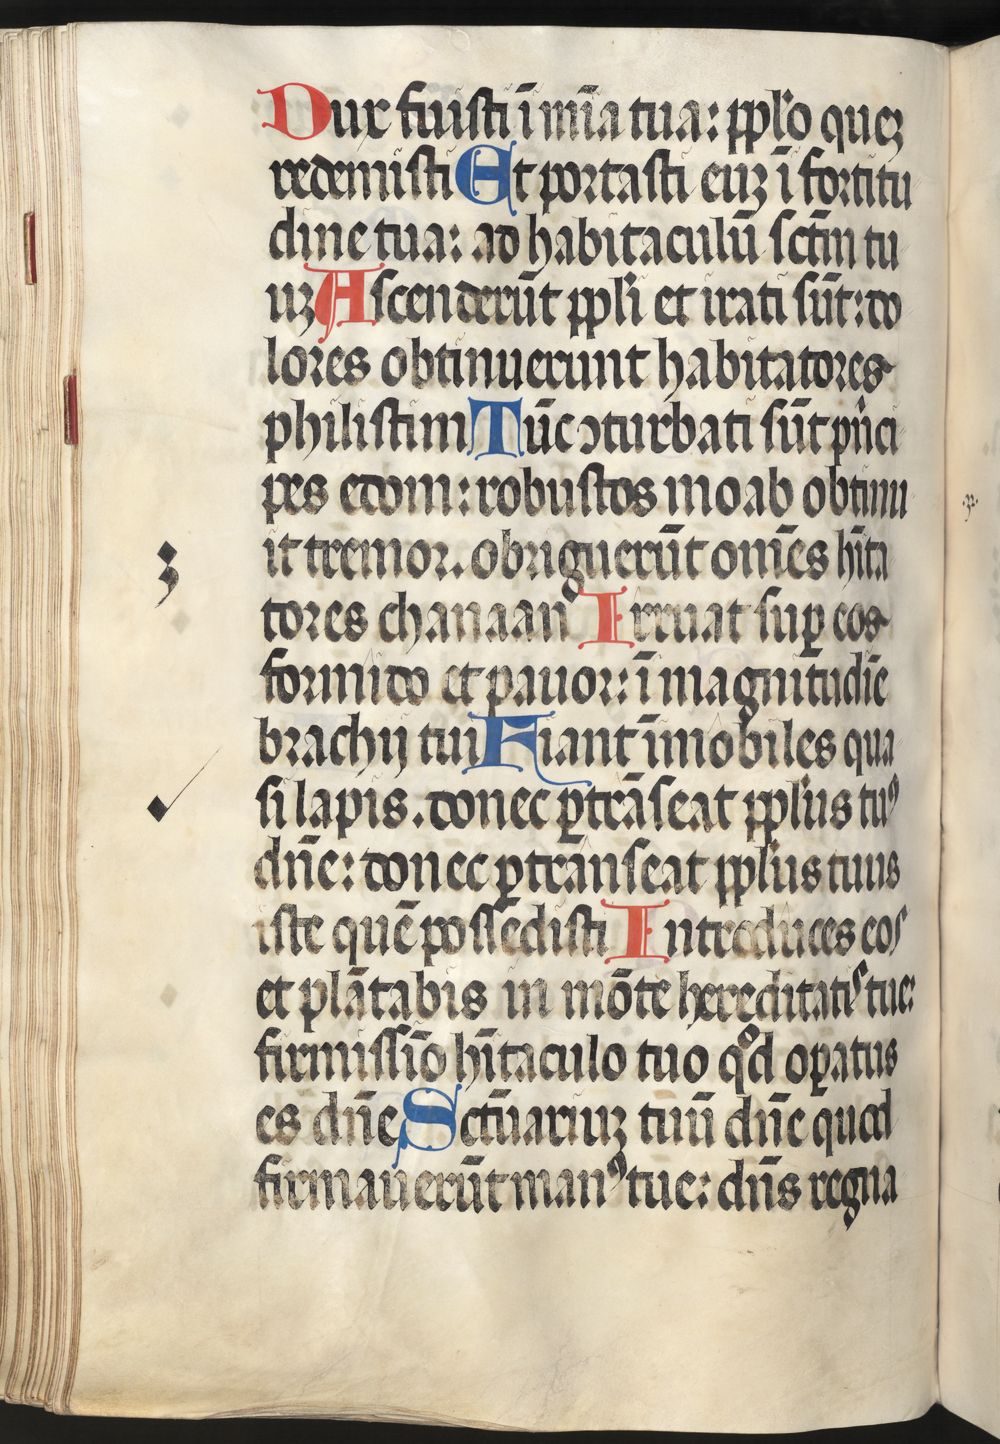 Dux fuisti ī mīa tua: pplo quez
redemisti Et portasti euz ī fortitu
dine tua: ad habitaculū sctm̄ tu
uz Ascenderūt ppli et irati sūt: do
lores obtinuerunt habitatores
philistim Tūc ↄturbati sūt pnci
pes edom: robustos moab obtinu
it tremor. obriguerūt om̄es hīta
tores chanaan Irruat sup̱ eos
formido et pauor: ī magnitudīe
brachij tui Fiant īmobiles qua
si lapis. donec p̱trāseat pplus tuꝰ
dn̄e: donec p̱transeat pplus tuus
iste quē possedisti Introduces eos
et plātabis in mōte hereditatis tue:
firmissīo hītaculo tuo qd op̱atus
es dn̄e Sctūariuz tuū dn̄e quod
firmauerūt manꝰ tue: dn̄s regna
3